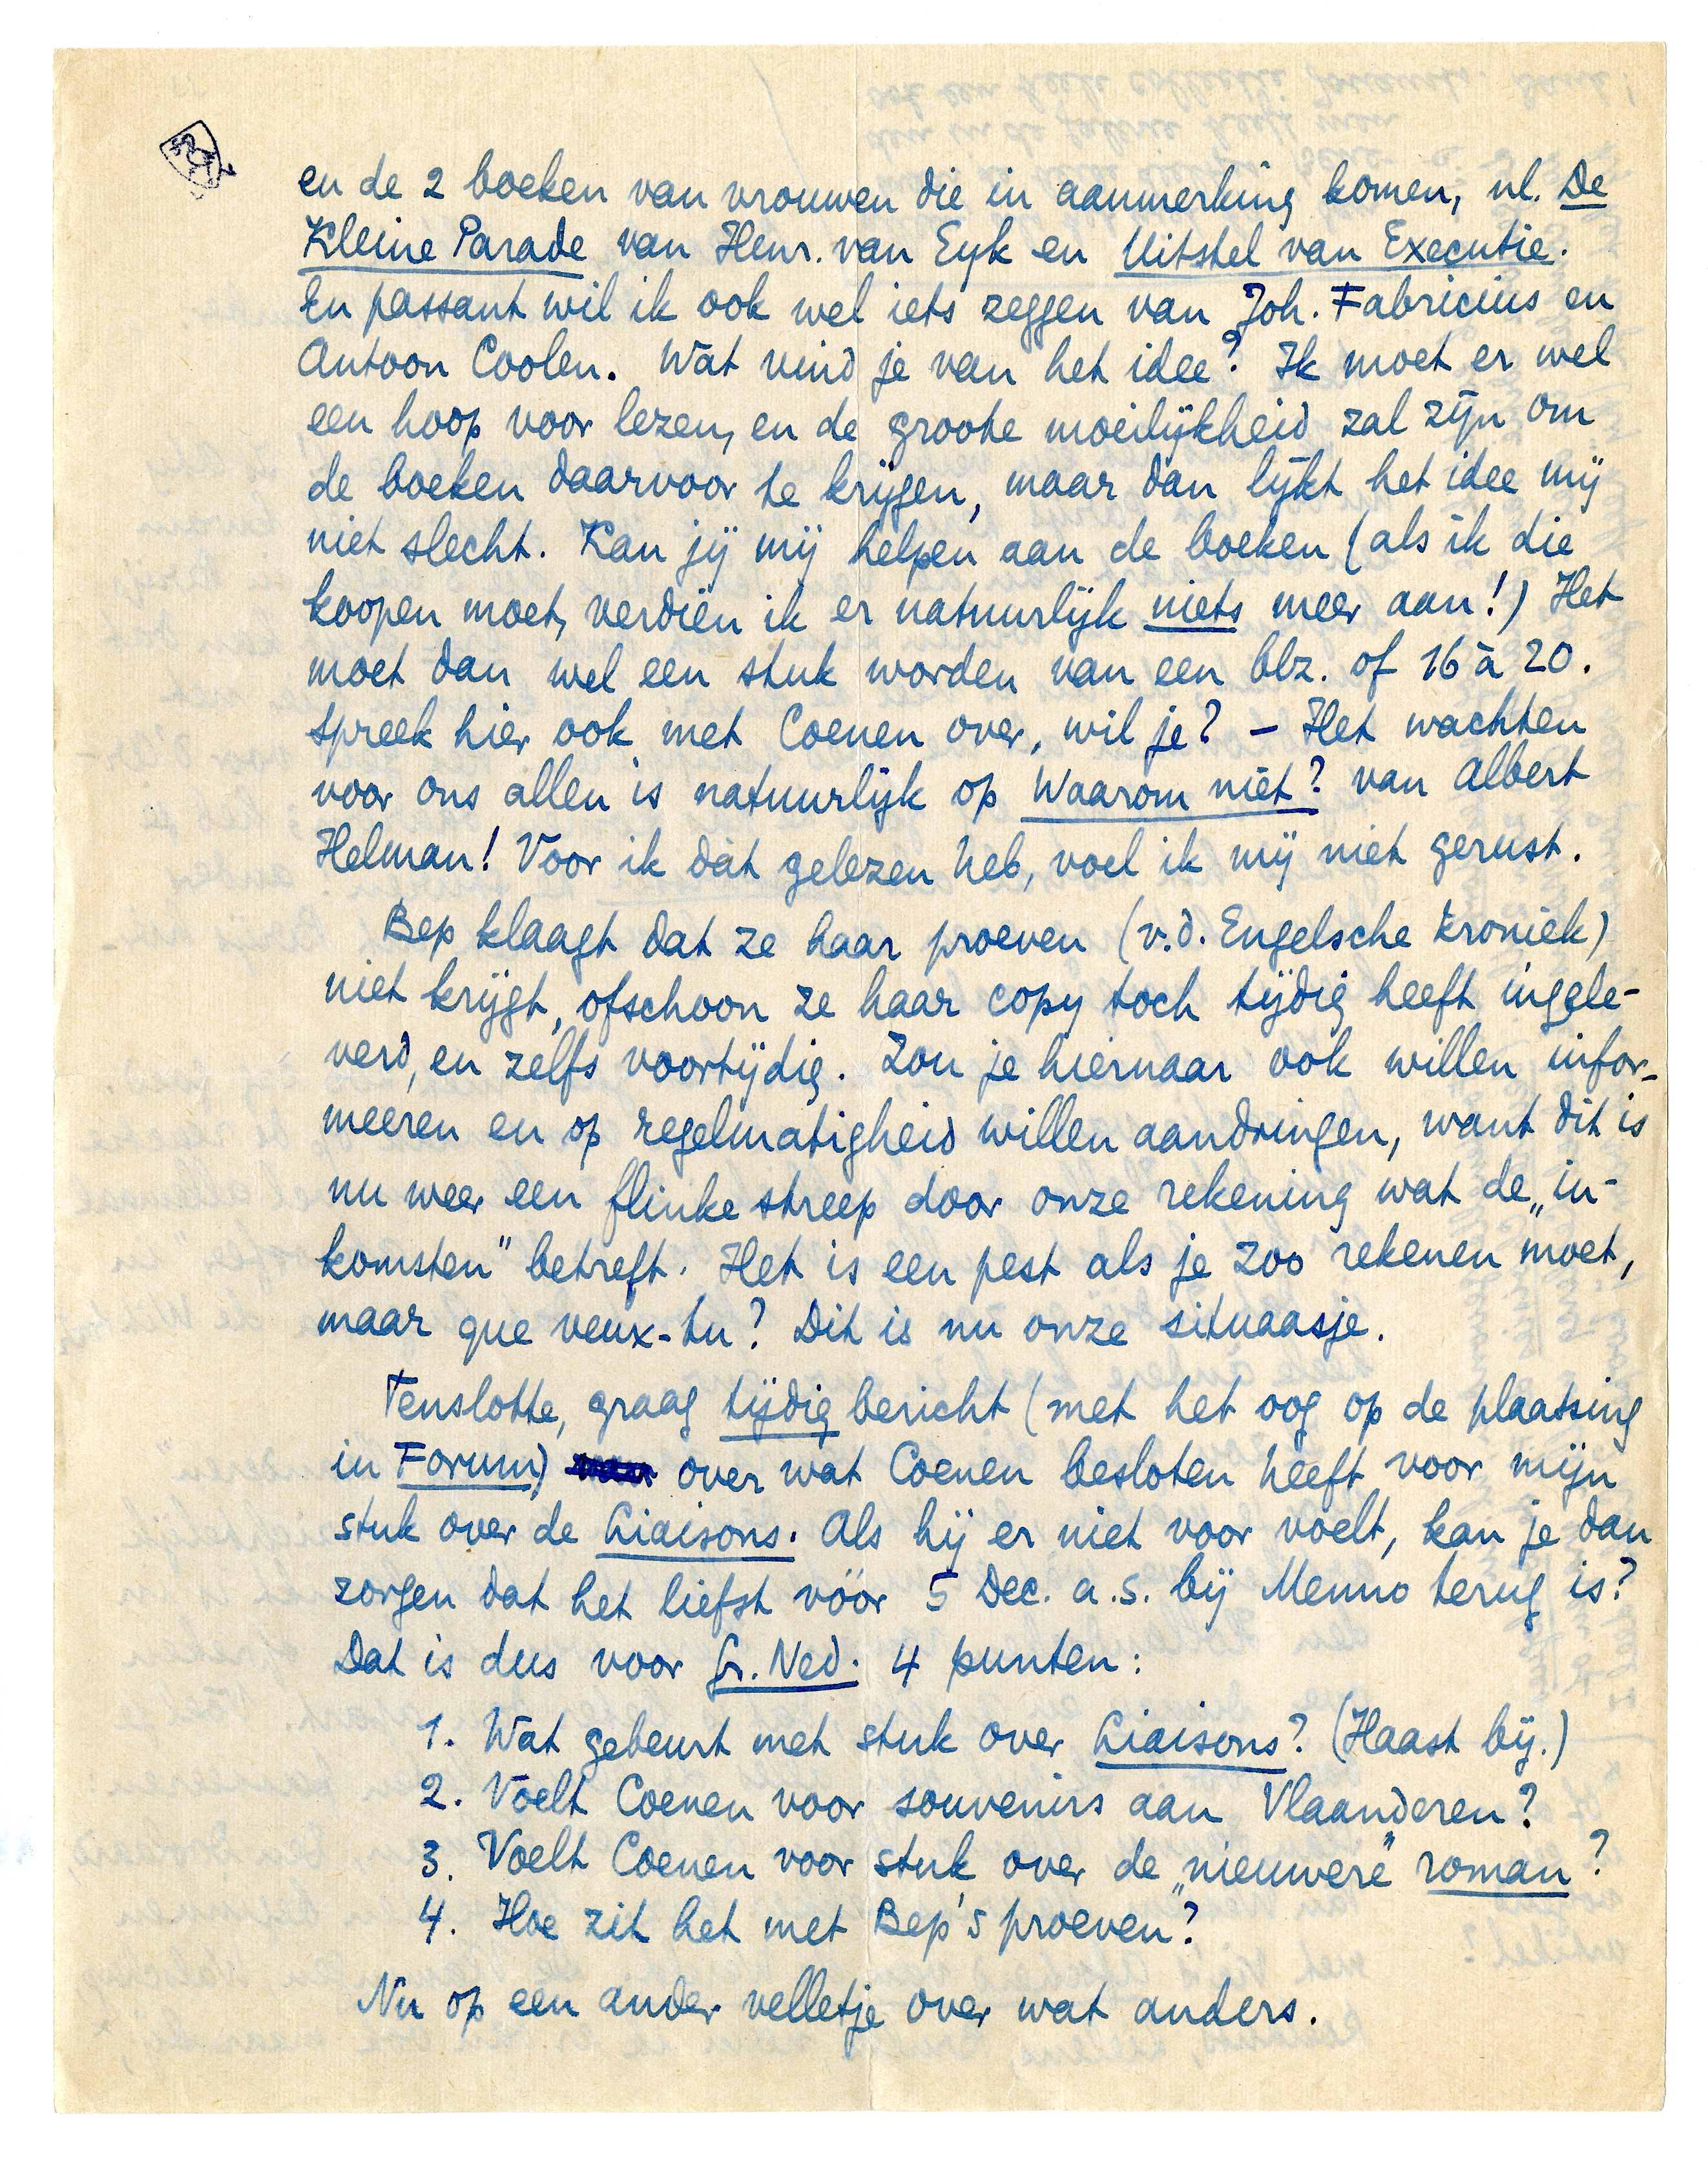 en de 2 boeken van vrouwen die in aanmerking komen, nl. De
Kleine Parade van Henr. van Eyk en Uitstel van Executie.
En passant wil ik ook wel iets zeggen van Joh. Fabricius en
Antoon Coolen. Wat vind je van het idee? Ik moet er wel
een hoop voor lezen, en de groote moeilijkheid zal zijn om
de boeken daarvoor te krijgen, maar dan lijkt het idee mij
niet slecht. Kan jij mij helpen aan de boeken (als ik die
koopen moet, verdien ik er natuurlijk niets meer aan!) Het
moet dan wel een stuk worden van een blz. of 16 à 20.
Spreek hier ook met Coenen over, wil je? – Het wachten
voor ons allen is natuurlijk op Waarom niet? van Albert
Helman! Voor ik dàt gelezen heb, voel ik mij niet gerust.
Bep klaagt dat ze haar proeven (v.d. Engelsche kroniek)
niet krijgt, ofschoon ze haar copy toch tijdig heeft ingele-
verd, en zelfs voortijdig. Zou je hiernaar ook willen infor-
meeren en op regelmatigheid willen aandringen, want dit is
nu weer een flinke streep door onze rekening wat de „in-
komsten" betreft. Het is een pest als je zoo rekenen moet,
maar que veux-tu? Dit is nu onze situaasje.
Tenslotte, graag tijdig bericht (met het oog op de plaatsing
in Forum) over wat Coenen besloten heeft voor mijn
stuk over de Liaisons. Als hij er niet voor voelt, kan je dan
zorgen dat het liefst vóór 5 Dec. a.s. bij Menno terug is?
Dat is dus voor Gr. Ned. 4 punten:
1. Wat gebeurt met stuk over Liaisons? (Haast bij.)
2. Voelt Coenen voor souvenirs aan Vlaanderen?
3. Voelt Coenen voor stuk over de „nieuwere" roman?
4. Hoe zit het met Bep's proeven?
Nu op een ander velletje over wat anders.